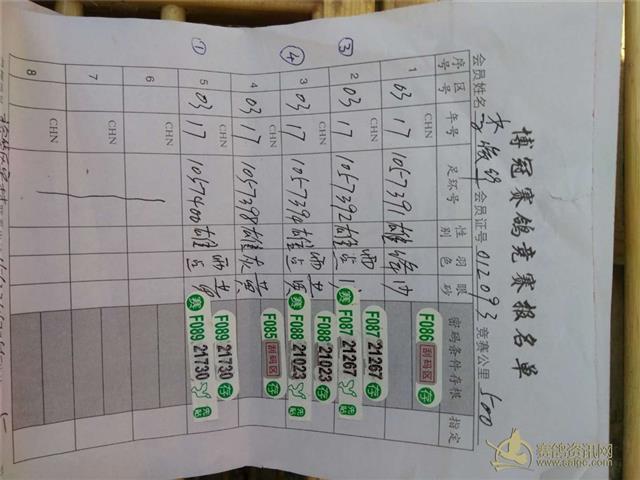 博冠赛鸽竞赛报名单
会员姓名 会员证号 012093 竞赛公里 500
序号 区号 年号 足环号 性别 羽色 眼砂 密码条件存根 指定
1 03 CHN 17 1057391 雄 F086 刮码区 存
2 03 CHN 17 1057392 雄 F087 21267 存
③ 赛 F087 21267
3 03 CHN 17 1057390 雄 雨点 黄 F088 21023 存
④ F088 21023
4 03 CHN 17 1057398 雄 灰 黄 F085 刮码区 存
5 03 CHN 17 1057400 雄 雨点 F089 21730 存
① 赛 F089 21730
6 CHN
7 CHN
8 CHN
赛鸽资讯网
www.saige.com